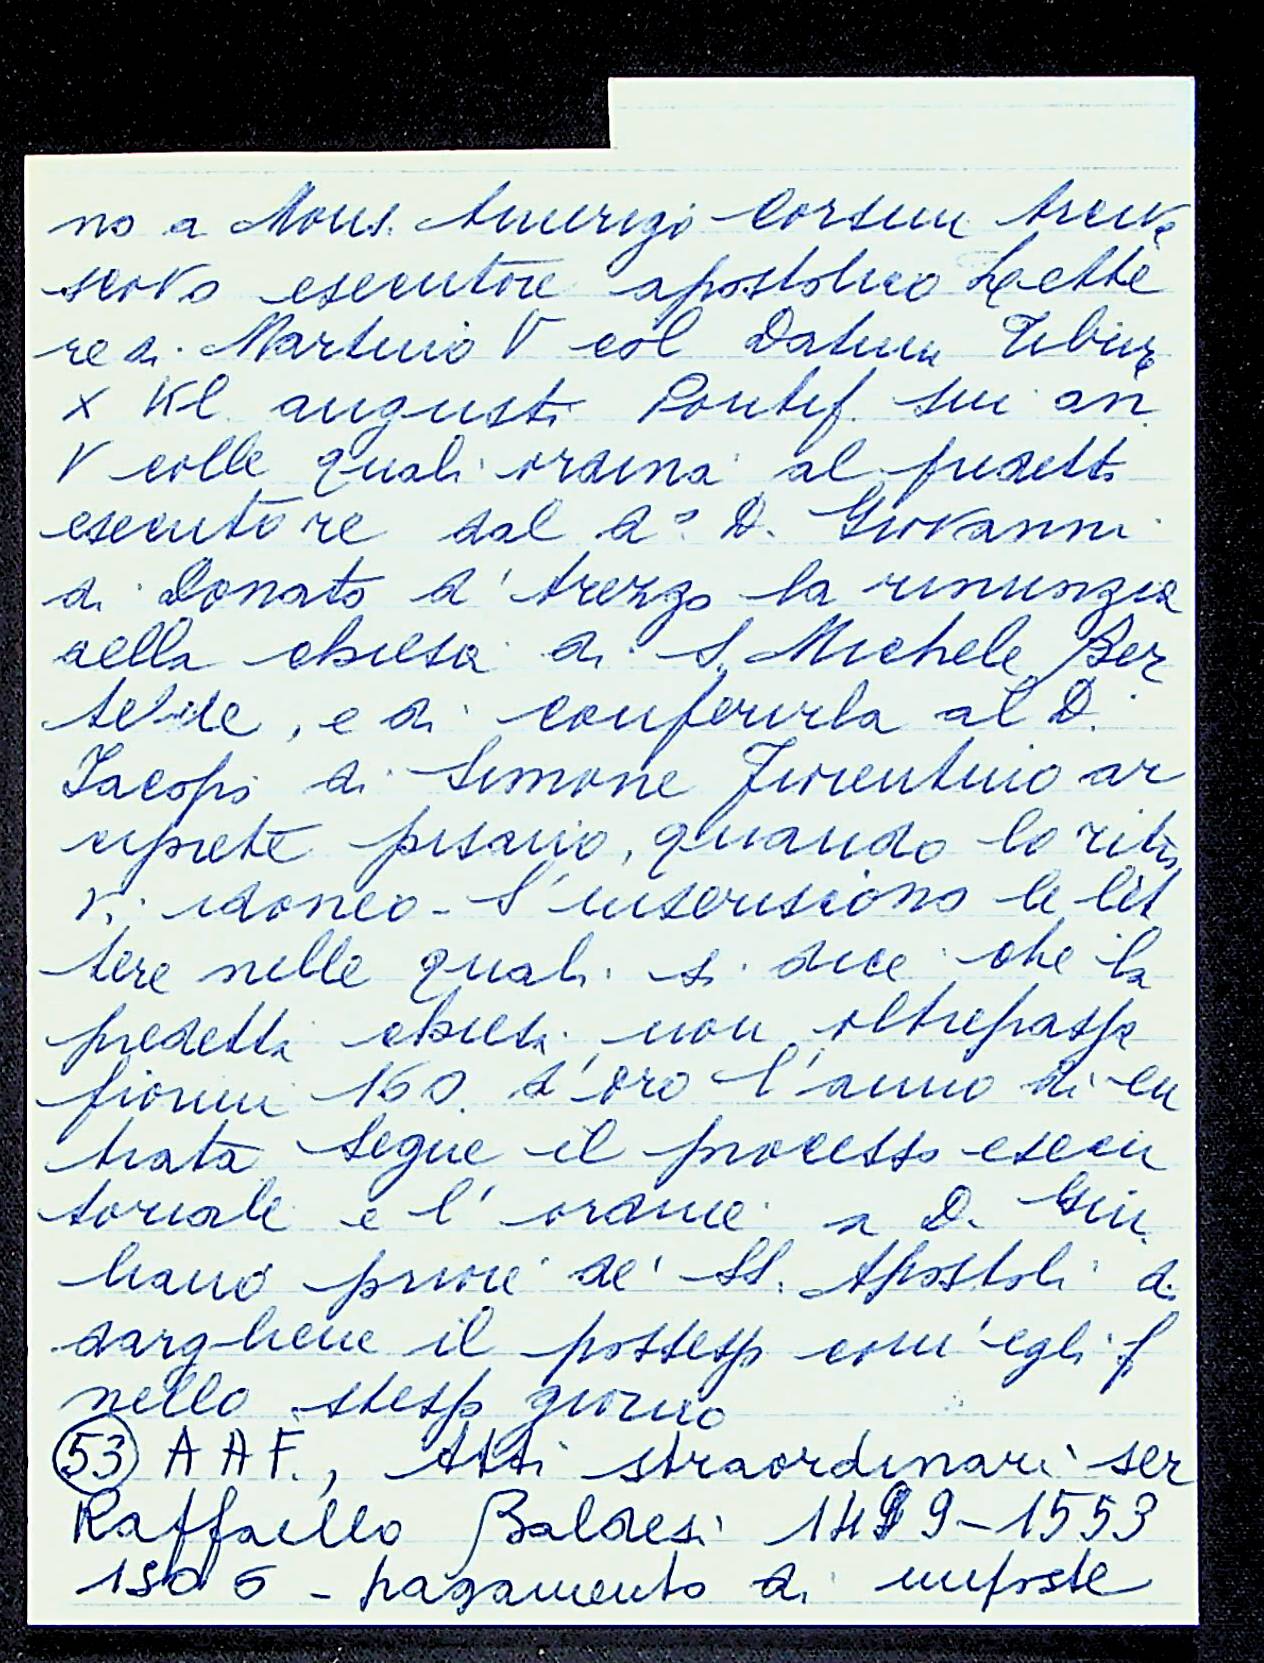 no a Mons. Amerigo Corsini Arcive
scovo esecutore apostolico Lette
re di Martino V col Datum Tibur
X Kl. augusti Pontif. sui an.
V colle quali ordina al predetto
esecutore dal dº D. Giovanni
di Donato d'Arezzo la rinunzia
della chiesa di S. Michele Ber
telde, e di conferirla al D.
Iacopo di Simone Fiorentino ar
ciprete pisano, quando lo ritro
vi idoneo - S'inseriscono le let
tere nelle quali si dice che la
predetta chiesa non oltrepassa
fiorini 160. d'oro l'anno di en
trata segue il processo esecu
toriale e l'ordine a D. Giu
liano priore de' SS. Apostoli di
dargliene il possesso com'egli f
nello stesso giorno
53 A A F., Atti straordinari ser
Raffaello Baldesi 1499-1553
1506 - pagamento di imposte